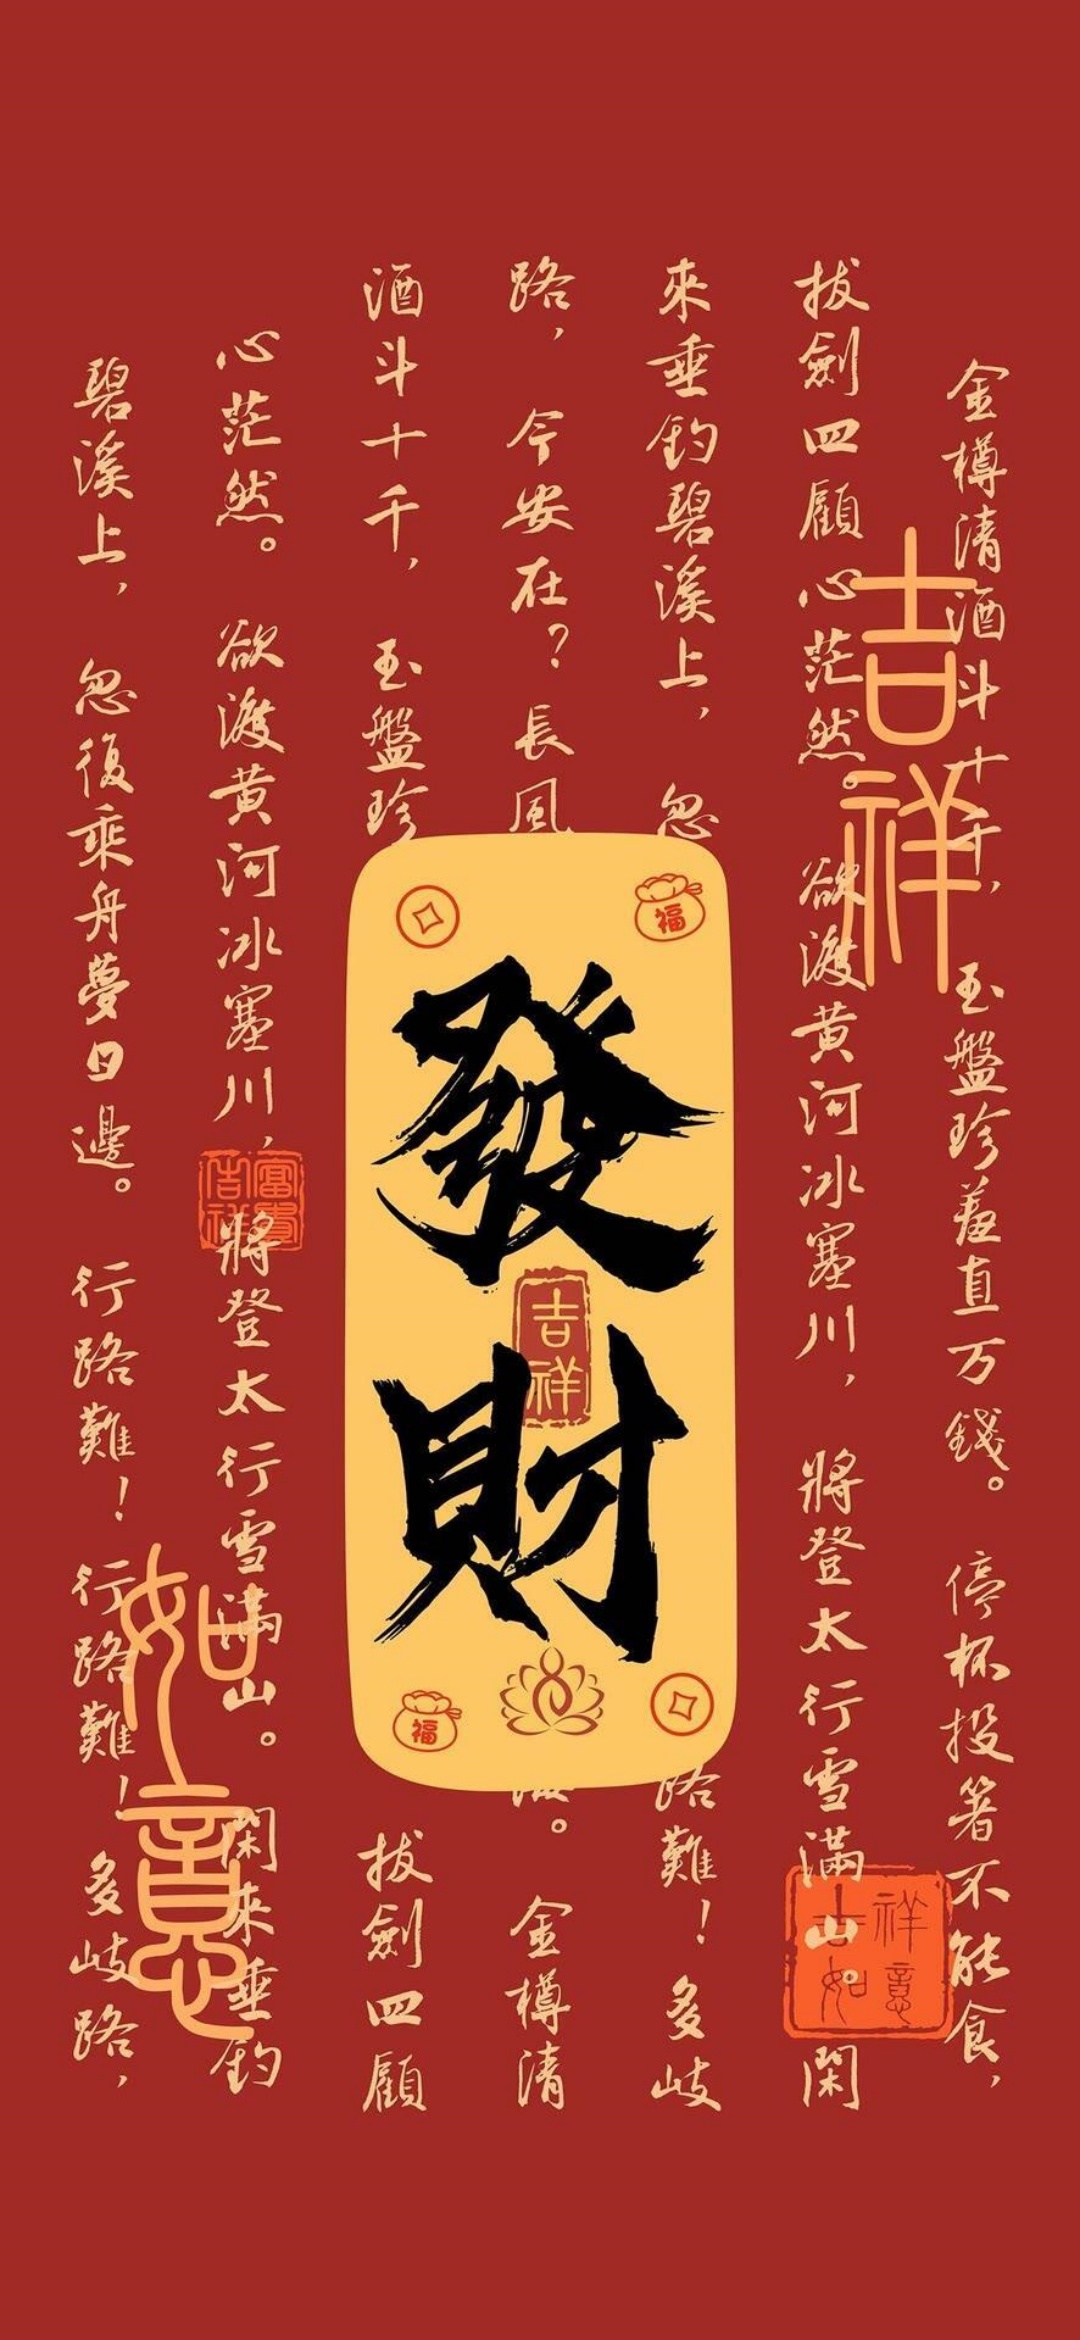 金樽清酒斗十千，玉盤珍羞直万錢。停杯投箸不能食，
拔劍四顧心茫然。欲渡黄河冰塞川，將登太行雪滿山。閑
來垂釣碧溪上，忽
路難！多岐
路，今安在？長風
。金樽清
酒斗十千，玉盤珍
拔劍四顧
心茫然。欲渡黄河冰塞川，將登太行雪滿山。閑來垂釣
碧溪上，忽復乘舟夢日邊。行路難！行路難！多岐路，
吉祥
福
發財
吉祥
福
祥意
吉如
富貴
吉祥
如意